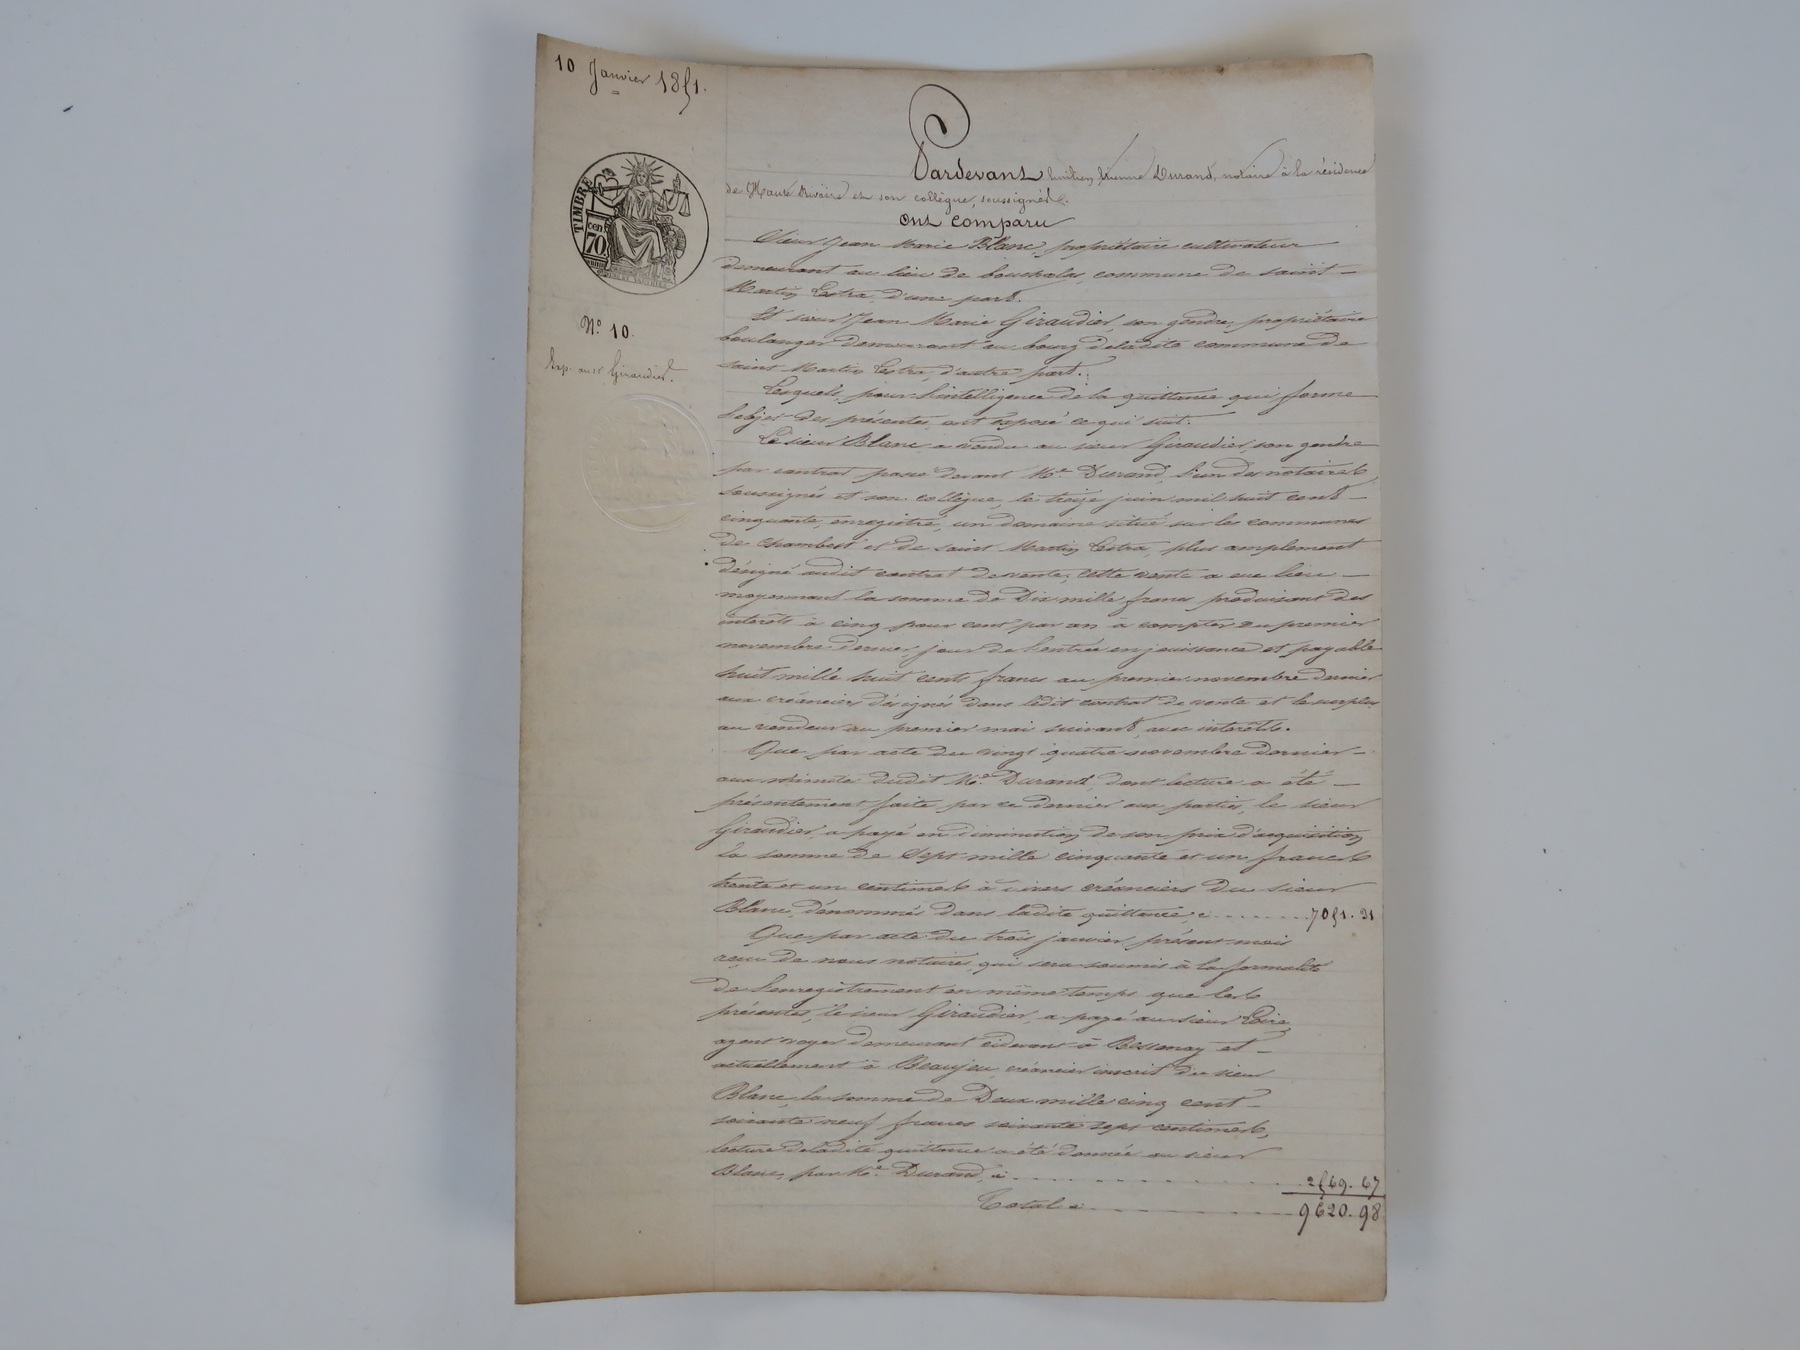 10 Janvier 1851.
TIMBRE
cen
70.
N.º 10.
Exp. au sr Giraudier.
Pardevant Etienne Durand, notaire à la résidence
de Haute Rivoire et son collègue, soussignés.
ont comparu
Sieur Jean Marie Blanc, propriétaire cultivateur
demeurant au lieu de commune de saint
Martin Lestra, d'une part.
Et sieur Jean Marie Giraudier, son gendre, propriétaire
boulanger demeurant au bourg deladite commune de
saint Martin Lestra, d'autre part.
Lesquels, pour l'intelligence de la quittance qui forme
l'objet des présentes, ont exposé ce qui suit.
Le sieur Blanc a vendu au sieur Giraudier, son gendre
par contrat passé devant Me. Durand, l'un des notaires
soussignés et son collègue, le treize juin mil huit cent
cinquante, enregistré, un domaine situé sur les communes
de chambost et de saint Martin Lestra, plus amplement
désigné audit contrat de vente; cette vente a eue lieu
moyennant la somme de Dix mille francs produisant des
intérêts à cinq pour cent par an à compter du premier
novembre dernier, jour de l'entrée en jouissance et payable
huit mille huit cents francs au premier novembre dernier
aux créanciers désignés dans ledit contrat de vente et le surplus
au vendeur au premier mai suivant, avec intérêts.
Que, par acte du vingt quatre novembre dernier
aux minutes dudit Me. Durand, dont lecture a été
présentement faite, par ce dernier aux parties, le sieur
Giraudier, a payé en diminution de son prix d'acquisition
la somme de Sept mille cinquante et un francs
trente et un centimes à divers créanciers du sieur
Blanc, dénommés dans ladite quittance, ci 7051. 31
Que, par acte du trois janvier, présent mois
reçu de nous notaires, qui sera soumis à la formalité
de l'enregistrement en même temps que les
présentes, le sieur Giraudier, a payé au sieur Loire
agent voyer demeurant cidevant à Bessenay et
actuellement à Beaujeu, créancier inscrit du sieur
Blanc, la somme de Deux mille cinq cent
soixante neuf francs soixante sept centimes,
lecture deladite quittance a été donnée au sieur
Blanc, par Me. Durand, ci 2569. 67
Total ci 9620. 98